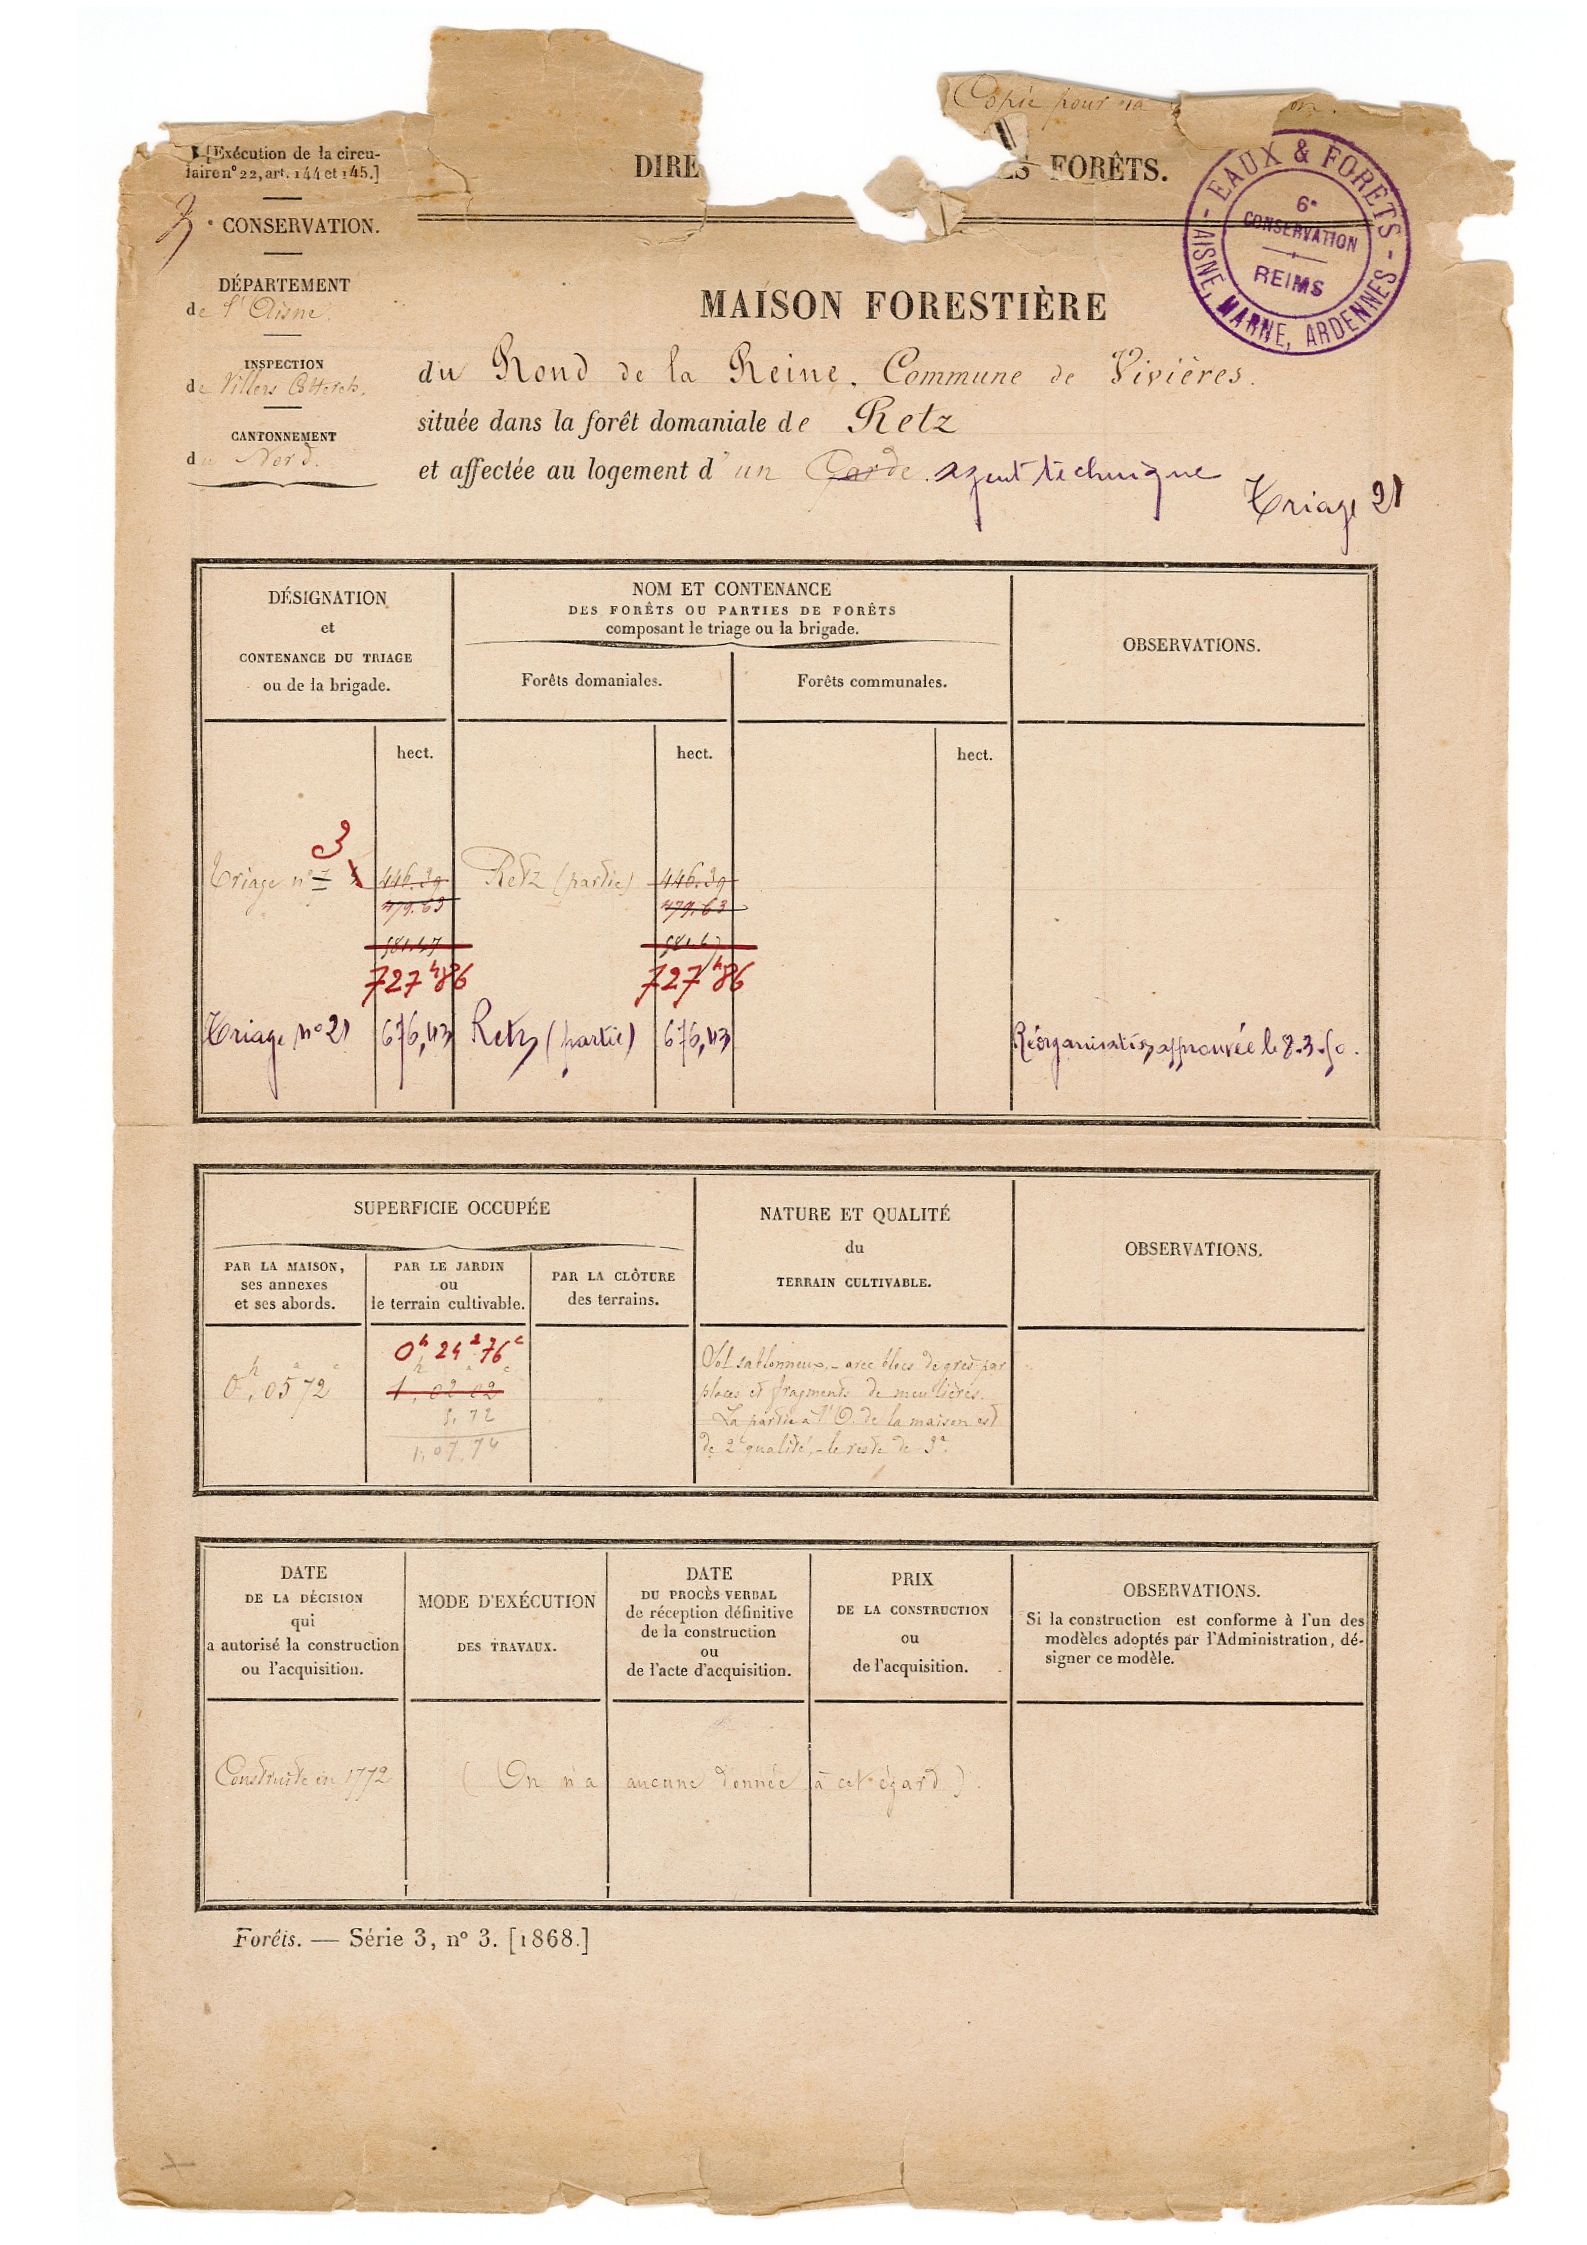 Copie pour la
[Exécution de la circu-
laire n° 22, art. 144 et 145.]
DIRE ES FORÊTS.
EAUX & FORETS
6e
CONSERVATION
REIMS
AISNE, MARNE, ARDENNES
7e CONSERVATION.
DÉPARTEMENT
de l'Aisne.
INSPECTION
de Villers Cotterets.
CANTONNEMENT
du Nord.
MAISON FORESTIÈRE
du Rond de la Reine. Commune de Vivières.
située dans la forêt domaniale de Retz
et affectée au logement d'un Garde. agent technique
Triage 21
DÉSIGNATION
et
CONTENANCE DU TRIAGE
ou de la brigade.
NOM ET CONTENANCE
DES FORÊTS OU PARTIES DE FORÊTS
composant le triage ou la brigade.
Forêts domaniales.
Forêts communales.
OBSERVATIONS.
hect. hect. hect.
3
Triage n° 7 446.39 Retz (partie) 446.39
479.63 479.63
581.47 581.47
727h86 727h86
Triage n° 21 676,43 Retz (partie) 676,43 Réorganisation approuvée le 8.3.50.
SUPERFICIE OCCUPÉE
PAR LA MAISON,
ses annexes
et ses abords.
PAR LE JARDIN
ou
le terrain cultivable.
PAR LA CLÔTURE
des terrains.
NATURE ET QUALITÉ
du
TERRAIN CULTIVABLE.
OBSERVATIONS.
0h, 05a 72c
0h 24a 76c
1h, 02a 02c
5, 72
1, 07, 74
"
Sol sablonneux, - avec blocs de grès par
places et fragments de meulières.
La partie à l'O. de la maison est
de 2e qualité, - le reste de 3e.
DATE
DE LA DÉCISION
qui
a autorisé la construction
ou l'acquisition.
MODE D'EXÉCUTION
DES TRAVAUX.
DATE
DU PROCÈS-VERBAL
de réception définitive
de la construction
ou
de l'acte d'acquisition.
PRIX
DE LA CONSTRUCTION
ou
de l'acquisition.
OBSERVATIONS.
Si la construction est conforme à l'un des
modèles adoptés par l'Administration, dé-
signer ce modèle.
Construite en 1772 (On n'a aucune donnée à cet égard).
Forêts. — Série 3, n° 3. [1868.]